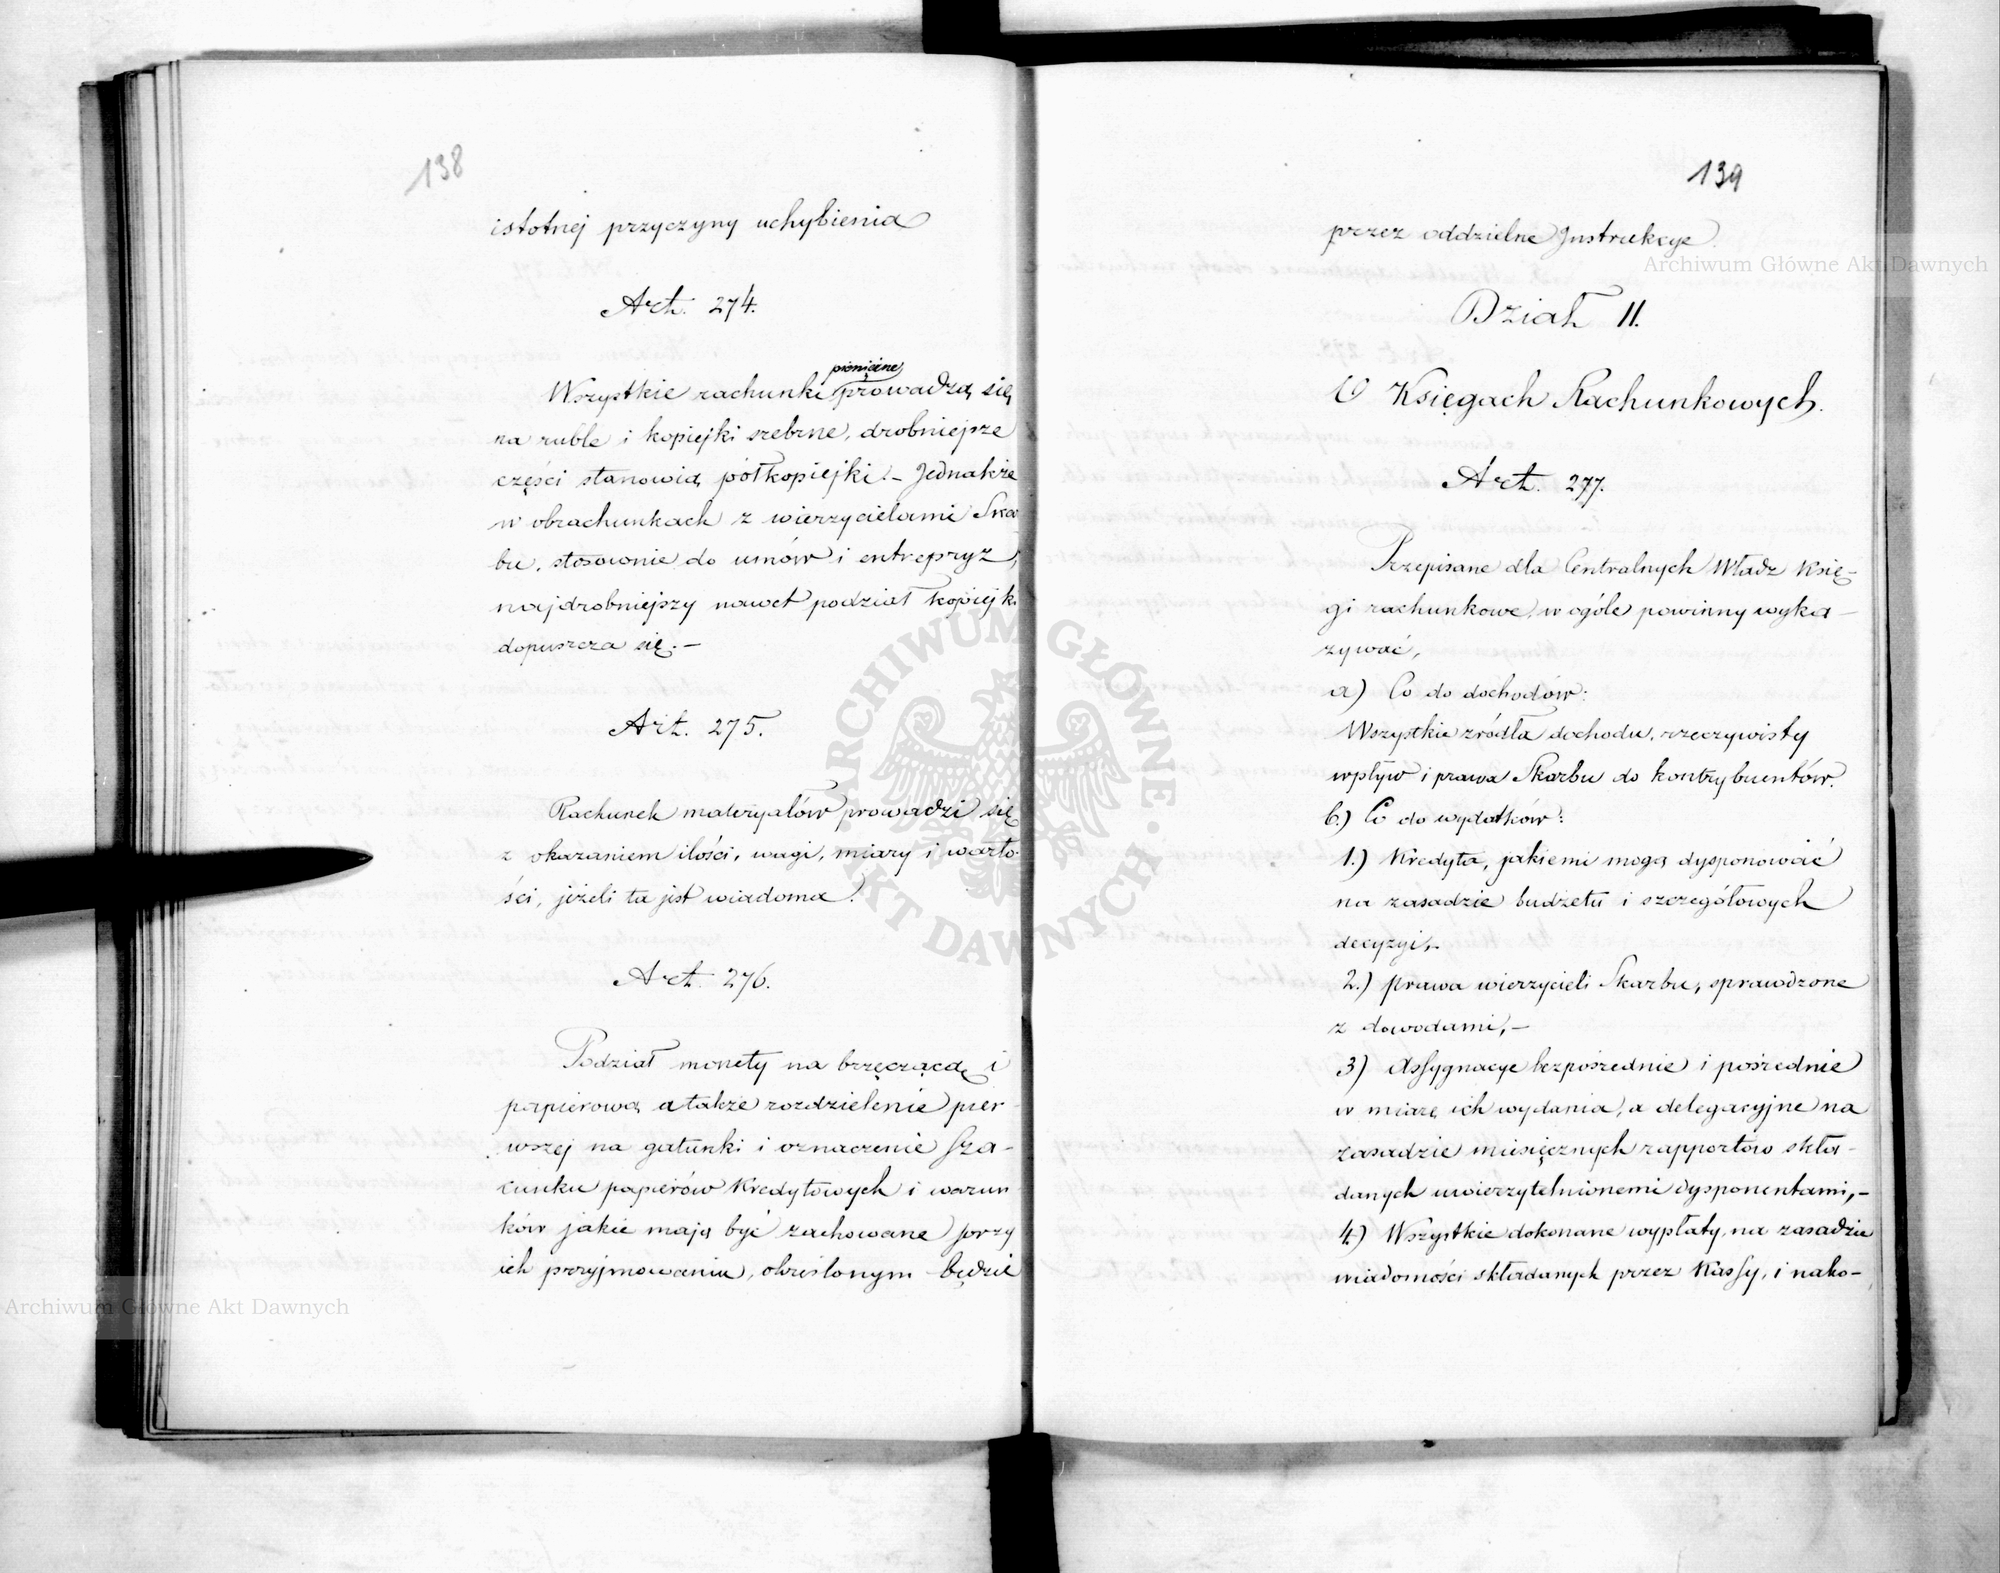 138
istotnej przyczyny uchybienia
Art. 274.
pieniężne
Wszystkie rachunki prowadzą się
na ruble i kopiejki srebrne, drobniejsze
części stanowią półkopiejki. – Jednakże
w obrachunkach z wierzycielami Skar
bu, stosownie do umów i entrepryz,
najdrobniejszy nawet podział kopiejki
dopuszcza się. –
Art. 275.
Rachunek materyałów prowadzi się
z okazaniem ilości, wagi, miary i warto-
ści, jeżeli ta jest wiadoma.
Art. 276.
Podział monety na brzęczącą i
papierową a także rozdzielenie pier-
wszej na gatunki i oznaczenie sza-
cunku papierów kredytowych i warun
ków jakie mają być zachowane przy
ich przyjmowaniu, określonym będzie
139
przez oddzielne Instrukcye.
Dział II.
O Księgach Rachunkowych.
Art. 277.
Przepisane dla Centralnych Władz Księ-
gi rachunkowe, w ogóle powinny wyka-
zywać,
a) Co do dochodów:
Wszystkie źródła dochodu, rzeczywisty
wpływ i prawa Skarbu do kontrybuentów.
b.) Co do wydatków:
1.) Kredyta, jakiemi mogą dysponować
na zasadzie budżetu i szczegółowych
decyzyi, –
2.) prawa wierzycieli Skarbu, sprawdzone
z dowodami, –
3) Assygnacye bezpośrednie i pośrednie
w miarę ich wydania, a delegacyjne na
zasadzie miesięcznych rapportów skła-
danych uwierzytelnionemi dysponentami, –
4.) Wszystkie dokonane wypłaty, na zasadzie
wiadomości składanych przez Kassy, i nako-
Archiwum Główne Akt Dawnych
Archiwum Główne Akt Dawnych
ARCHIWUM GŁÓWNE AKT DAWNYCH